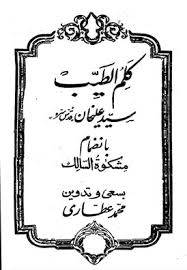 کلم الطیب
سید علیخان
بانضمام
مشکوة السالک
بسعی و تدوین
محمد عطاری